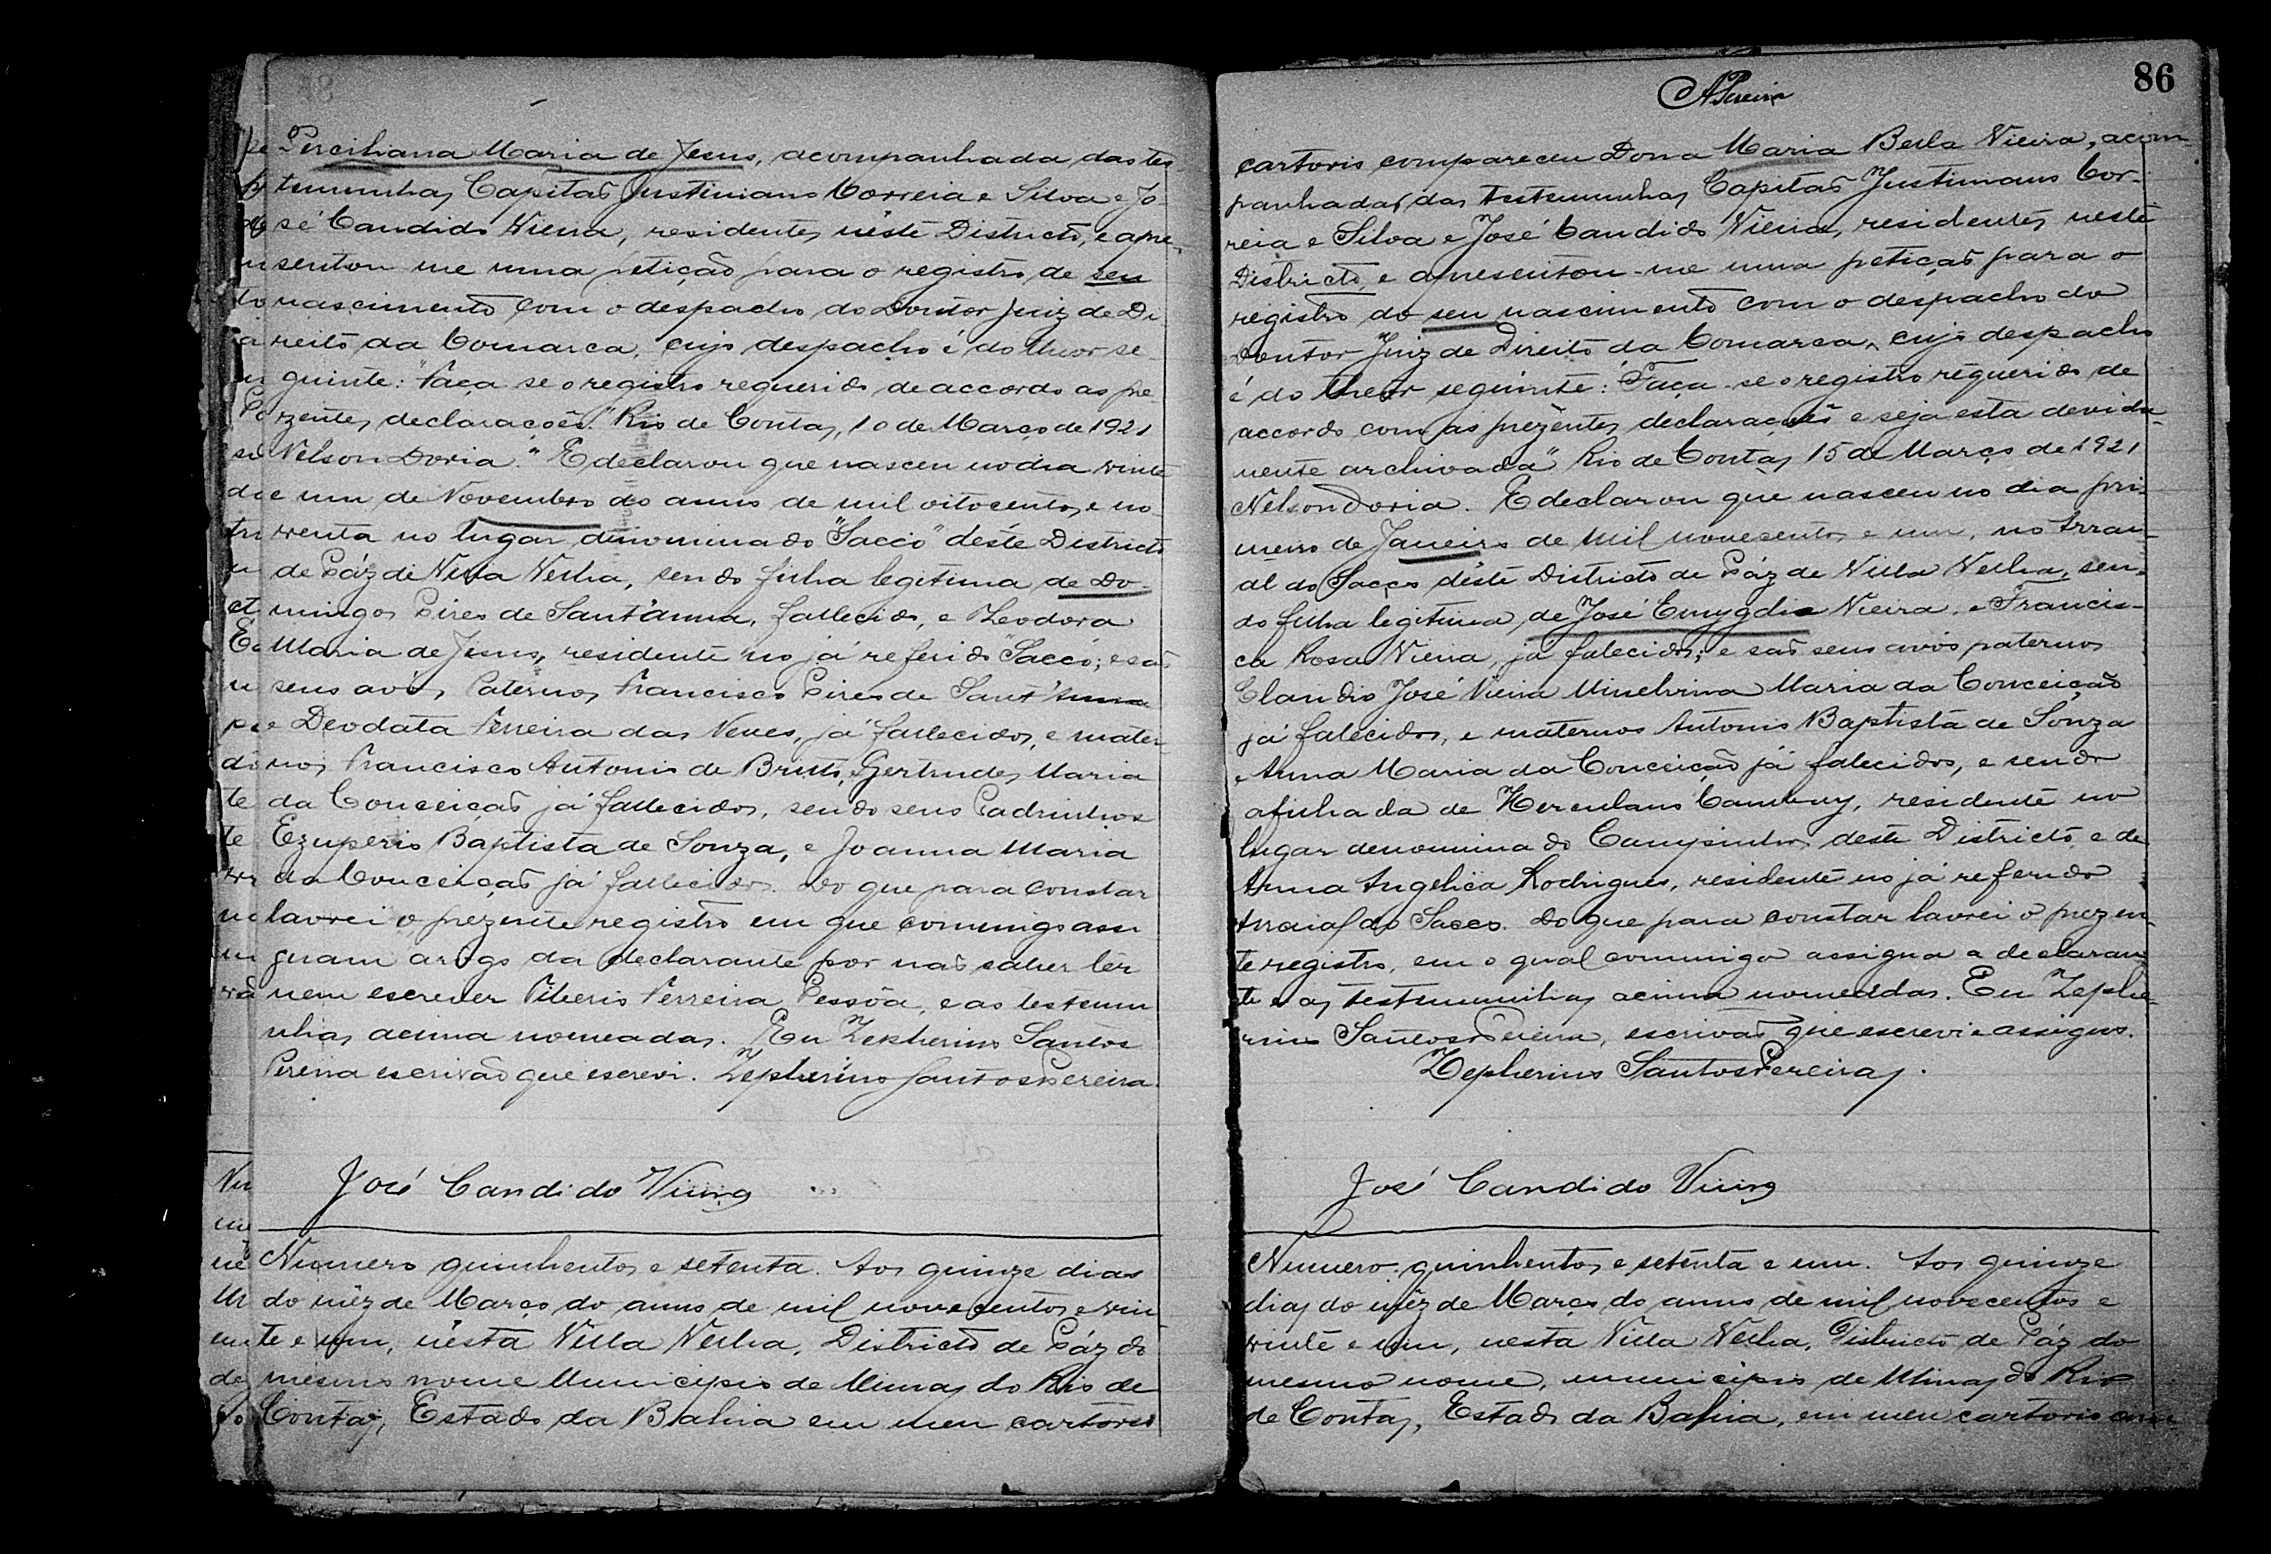 Perciliana Maria de Jesus, acompanhada das tes
temunhas Capitão Justiniano Correia e Silva e Jo
sé Candido Vieira, residentes néste Districto, e apre
sentou me uma petição para o registro de seu
nascimento com o despacho do Doutor Juiz de Di
reito da Comarca, cujo despacho é do theor se
guinte: "Faça se o registro requerido de accordo as pre
zentes declarações." Rio de Contas, 10 de Março de 1921
Nelson Doria." E declarou que nasceu no dia vinte
e um de Novembro do anno de mil oitocentos e no
venta no lugar dinominado "Sacco" déste Districto
de Páz de Villa Velha, sendo filha legitima de Do-
mingos Pires de Sant'anna, fallecido, e Theodora
Maria de Jesus, residente no já referido "Sacco"; e são
seus avós Paternos Francisco Pires de Sant'Anna
e Deodata Ferreira das Neves, já fallecidos, e mater-
nos Francisco Antonio de Britto, e Gertrudes Maria
da Conceição já fallecidos, sendo seus Padrinhos
Ezuperio Baptista de Souza, e Joanna Maria
da Conceição já fallecidos. Do que para constar
lavrei o prezente registro em que commigo assi
gnam arogo da declarante por não saber lêr
nem escrever Tiberio Ferreira Pessôa, e as testemu
nhas acima nomeadas. Eu Zepherino Santos
Pereira escrivão que escrevi. Zepherino Santos Pereira.
José Candido Vieira
Numero quinhentos e setenta. Aos quinze dias
do mêz de Março do anno de mil novecentos e vin
te e um, nésta Villa Velha, Districto de Páz do
mesmo nome Municipio de Minas do Rio de
Contas, Estado da Bahia em meu cartorio
86
APereira
cartorio compareceu Dona Maria Bella Vieira, acom-
panhada das testemunhas Capitão Justiniano Cor-
reia e Silva e José Candido Vieira, residentes neste
Districto, e apresentou-me uma petição para o
registro do seu nascimento com o despacho do
Doutor Juiz de Direito da Comarca, cujo despacho
é do theor seguinte: "Faça-se o registro requerido de
accordo com as prezentes declarações e seja esta devida-
mente archivada" Rio de Contas 15 de Março de 1921
Nelson Doria. E declarou que nasceu no dia pri-
meiro de Janeiro de mil novecentos e um, no Arrai-
al do Sacco déste Districto de Páz de Villa Velha, sen-
do filha legitima de José Emygdio Vieira, e Francis-
ca Rosa Vieira, já falecidos; e são seus avós paternos
Claudio José Vieira Minelvina Maria da Conceição
já falecidos, e maternos Antonio Baptista de Souza
e Anna Maria da Conceição já falecidos, e sendo
afilhada de Herculano Cambuy, residente no
lugar denominado Campinhos deste Districto, e de
Anna Angelica Rodrigues, residente no já referido
Arraial do Sacco. Do que para constar lavrei o prezen-
te registro, em o qual commigo assigna a declaran
te e as testemunhas acima nomeadas. Eu Zephe-
rino Santos Pereira, escrivão que escrevi e assigno.
Zepherino Santos Pereira.
José Candido Vieira
Numero quinhentos e seténta e um. Aos quinze
dias do mêz de Março do anno de mil novecentos e
vinte e um, nesta Villa Velha, Districto de Páz do
mesmo nome, municipio de Minas do Rio
de Contas, Estado da Bahia, em meu cartorio com-